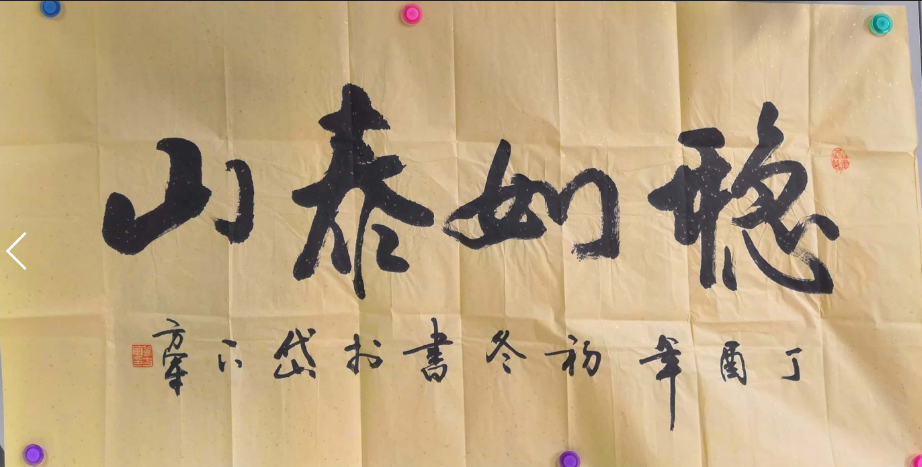 稳如泰山
丁酉年初冬書於岱下方